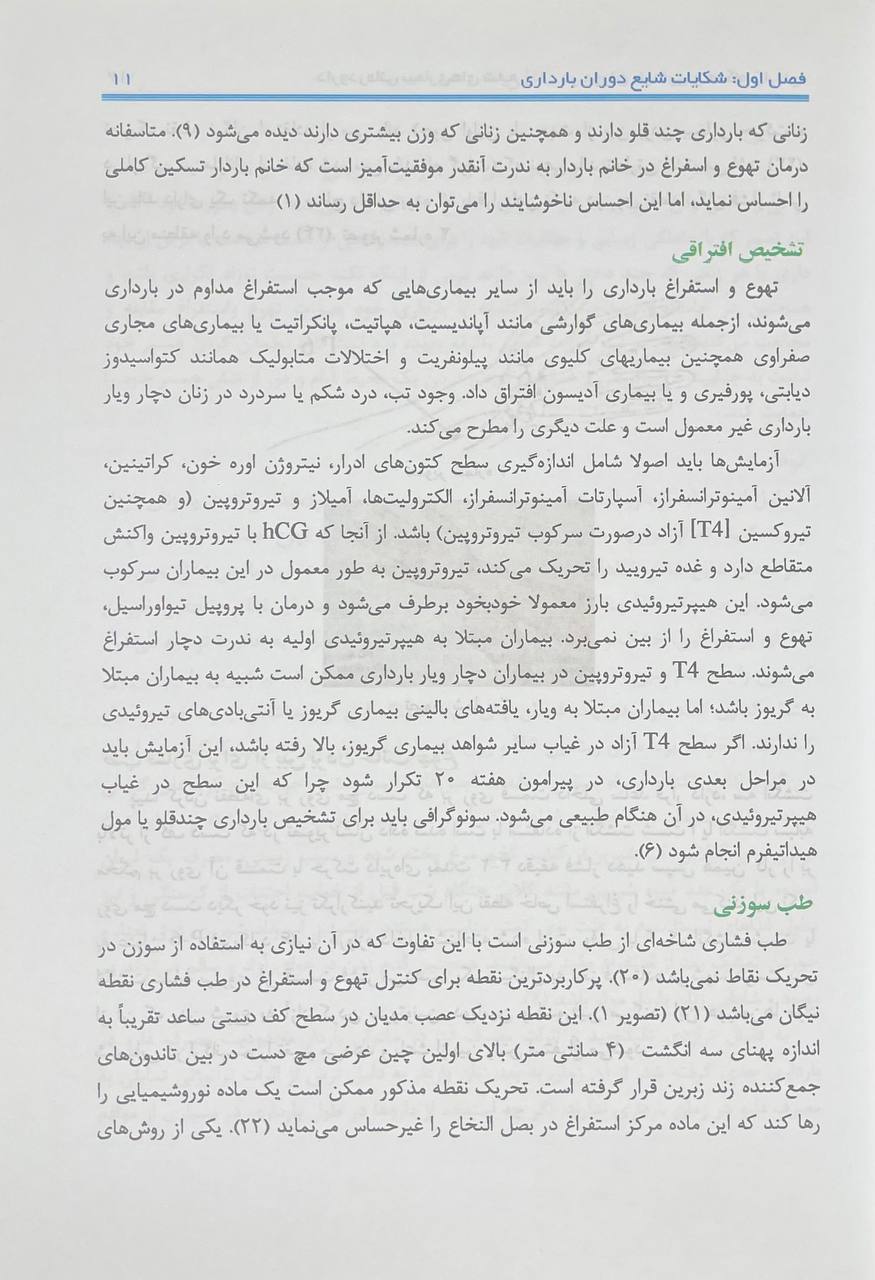 فصل اول: شکایات شایع دوران بارداری ۱۱
زنانی که بارداری چند قلو دارند و همچنین زنانی که وزن بیشتری دارند دیده می‌شود (۹). متاسفانه
درمان تهوع و اسفراغ در خانم باردار به ندرت آنقدر موفقیت‌آمیز است که خانم باردار تسکین کاملی
را احساس نماید، اما این احساس ناخوشایند را می‌توان به حداقل رساند (۱)
تشخیص افتراقی
تهوع و استفراغ بارداری را باید از سایر بیماری‌هایی که موجب استفراغ مداوم در بارداری
می‌شوند، ازجمله بیماری‌های گوارشی مانند آپاندیسیت، هپاتیت، پانکراتیت یا بیماری‌های مجاری
صفراوی همچنین بیماریهای کلیوی مانند پیلونفریت و اختلالات متابولیک همانند کتواسیدوز
دیابتی، پورفیری و یا بیماری آدیسون افتراق داد. وجود تب، درد شکم یا سردرد در زنان دچار ویار
بارداری غیر معمول است و علت دیگری را مطرح می‌کند.
آزمایش‌ها باید اصولا شامل اندازه‌گیری سطح کتون‌های ادرار، نیتروژن اوره خون، کراتینین،
آلانین آمینوترانسفراز، آسپارتات آمینوترانسفراز، الکترولیت‌ها، آمیلاز و تیروتروپین (و همچنین
تیروکسین [T4] آزاد درصورت سرکوب تیروتروپین) باشد. از آنجا که hCG با تیروتروپین واکنش
متقاطع دارد و غده تیرویید را تحریک می‌کند، تیروتروپین به طور معمول در این بیماران سرکوب
می‌شود. این هیپرتیروئیدی بارز معمولا خودبخود برطرف می‌شود و درمان با پروپیل تیواوراسیل،
تهوع و استفراغ را از بین نمی‌برد. بیماران مبتلا به هیپرتیروئیدی اولیه به ندرت دچار استفراغ
می‌شوند. سطح T4 و تیروتروپین در بیماران دچار ویار بارداری ممکن است شبیه به بیماران مبتلا
به گریوز باشد؛ اما بیماران مبتلا به ویار، یافته‌های بالینی بیماری گریوز یا آنتی‌بادی‌های تیروئیدی
را ندارند. اگر سطح T4 آزاد در غیاب سایر شواهد بیماری گریوز، بالا رفته باشد، این آزمایش باید
در مراحل بعدی بارداری، در پیرامون هفته ۲۰ تکرار شود چرا که این سطح در غیاب
هیپرتیروئیدی، در آن هنگام طبیعی می‌شود. سونوگرافی باید برای تشخیص بارداری چندقلو یا مول
هیداتیفرم انجام شود (۶).
طب سوزنی
طب فشاری شاخه‌ای از طب سوزنی است با این تفاوت که در آن نیازی به استفاده از سوزن در
تحریک نقاط نمی‌باشد (۲۰). پرکاربردترین نقطه برای کنترل تهوع و استفراغ در طب فشاری نقطه
نیگان می‌باشد (۲۱) (تصویر ۱). این نقطه نزدیک عصب مدیان در سطح کف دستی ساعد تقریباً به
اندازه پهنای سه انگشت (۴ سانتی متر) بالای اولین چین عرضی مچ دست در بین تاندون‌های
جمع‌کننده زند زبرین قرار گرفته است. تحریک نقطه مذکور ممکن است یک ماده نوروشیمیایی را
رها کند که این ماده مرکز استفراغ در بصل النخاع را غیرحساس می‌نماید (۲۲). یکی از روش‌های